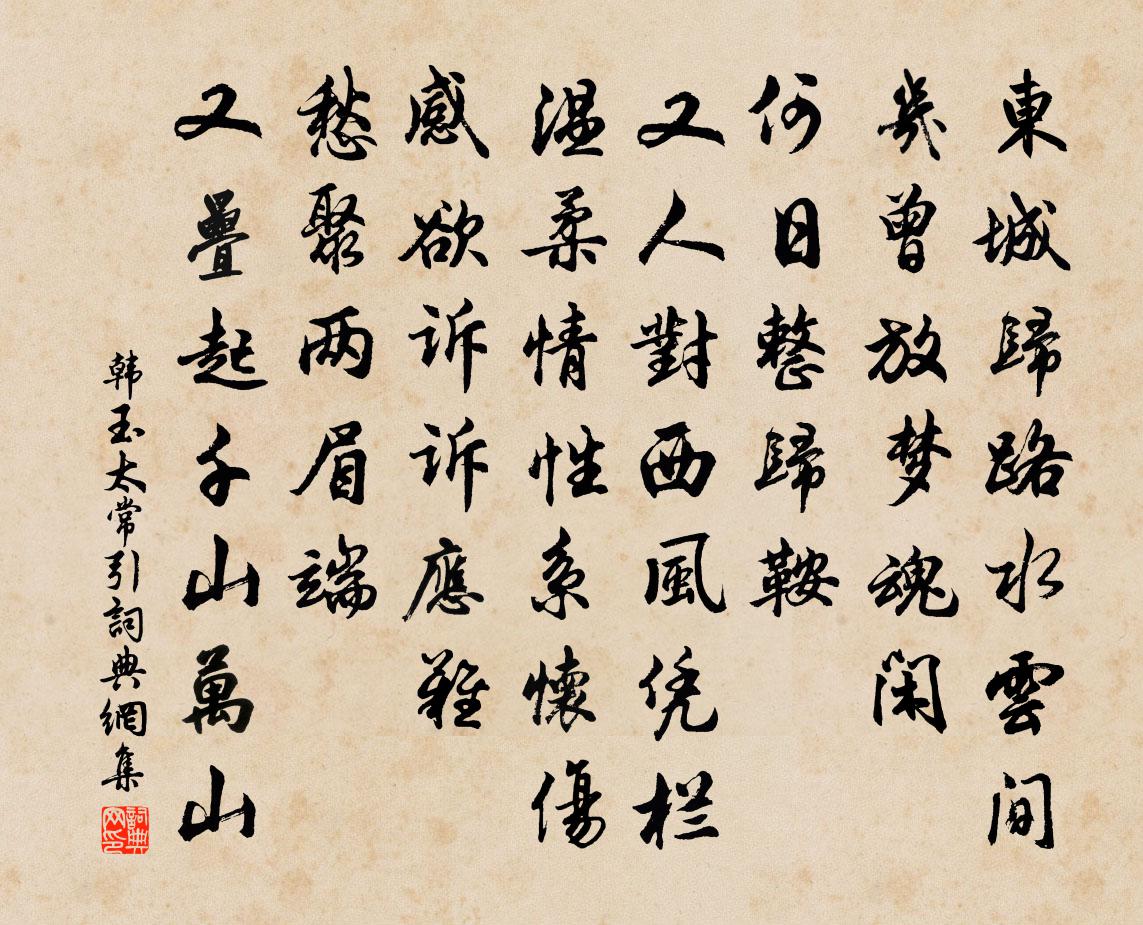 東城歸路水雲間
幾曾放梦魂闲
何日整歸鞍
又人對西風凭栏
温柔情性系懷傷
感欲诉诉應難
愁聚两眉端
又疊起千山萬山
韩玉太常引詞典網集
詞典网印